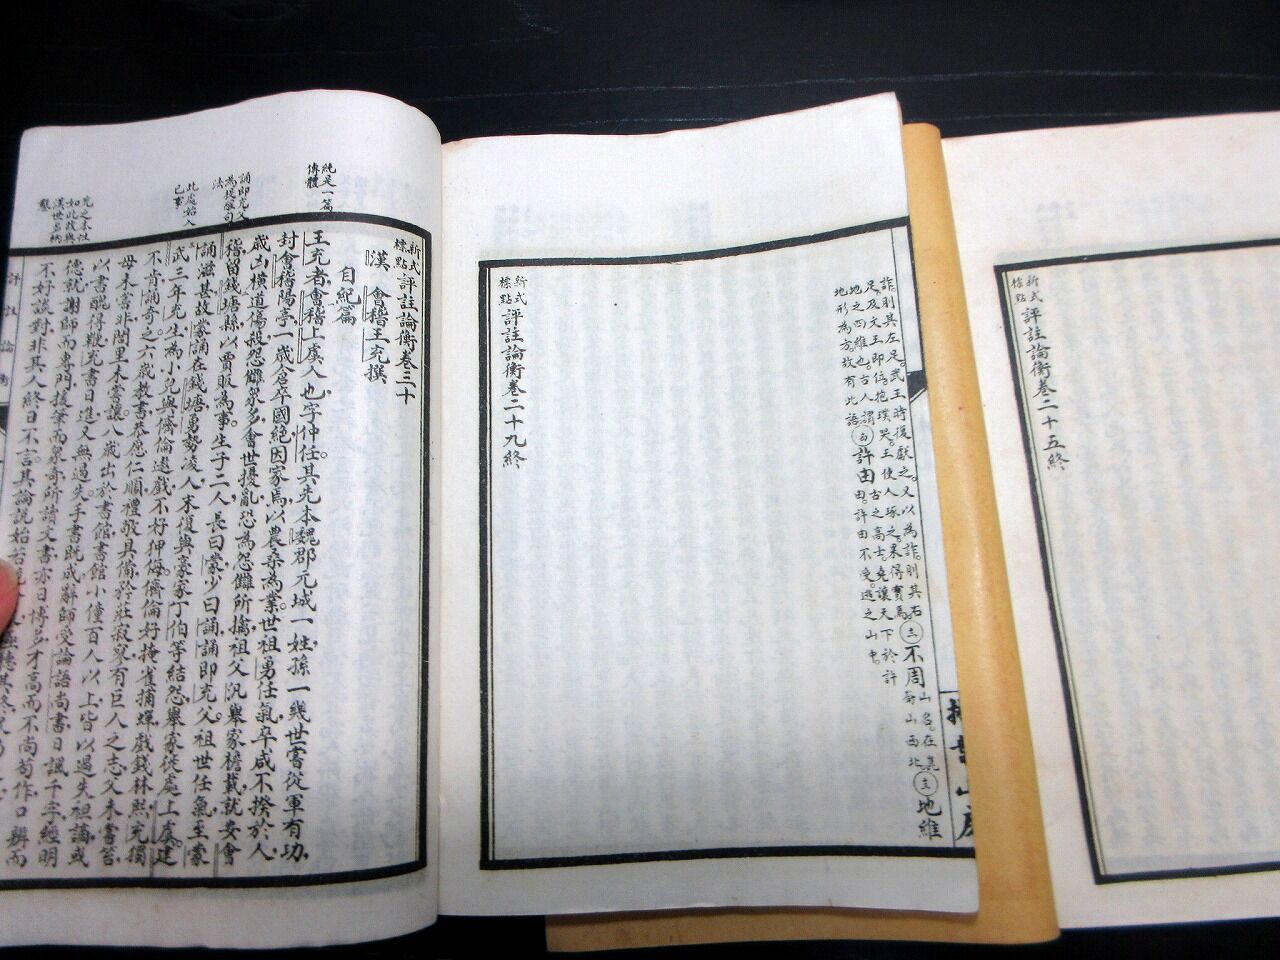 新式標點評註論衡卷二十五終
詐。則其左足。武王時復獻之。又以為詐。則其右
足。及文王即位。抱璞哭。王使人琢之。果得寶焉
不周
山名。在
山西北
地維
地之四維也。古人謂
地形為方。故有此語
許由
古之高士。堯讓天下於許
由。許由不受。逃之山中。
新式標點評註論衡卷二十九終
純是一篇
傳體
誦即充父
為提醒句
法
此處始入
己事
充之本性
如此故與
漢世名柄
鑿
新式標點評註論衡卷三十
漢會稽王充撰
自紀篇
王充者會稽上虞人也。字仲任。其先本魏郡元城一姓孫一幾世嘗從軍有功。
封會稽陽亭。一歲倉卒國絕因家焉以農桑為業。世祖勇任氣卒咸不揆於人。
歲凶橫道傷殺怨讎眾多。會世擾亂恐為怨讎所擒祖父汎舉家檐載就安會
稽留錢塘縣以賈販為事。生子二人長曰蒙少曰誦誦即充父。祖世任氣至蒙
誦滋甚故蒙誦在錢塘勇勢凌人末復與豪家丁伯等結怨舉家徙處上虞。建
武三年充生。為小兒與儕倫遨戲不好狎侮儕倫好掩雀捕蟬戲錢林熙充獨
不肯誦奇之六歲教書恭愿仁順禮敬具備矜莊寂寥有巨人之志父未嘗笞
母未嘗非閭里未嘗讓八歲出於書館書館小僮百人以上皆以過失袒謫或
以書醜得鞭充書日進又無過失手書既成辭師受論語尚書日諷千字經明
德就謝師而專門援筆而眾奇所讀文書亦日博多才高而不尚苟作口辯而
不好談對非其人終日不言其論說始
評註論衡